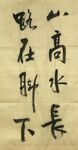 山高水長
路在脚下